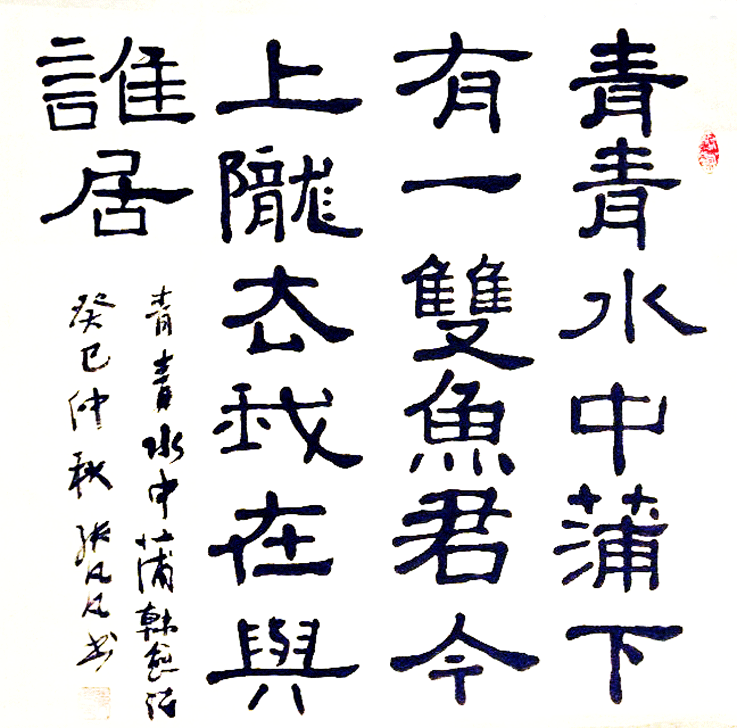 青青水中蒲下
有一雙魚君今
上隴去我在與
誰居
青青水中蒲韓愈詩
癸巳仲秋張凡凡书